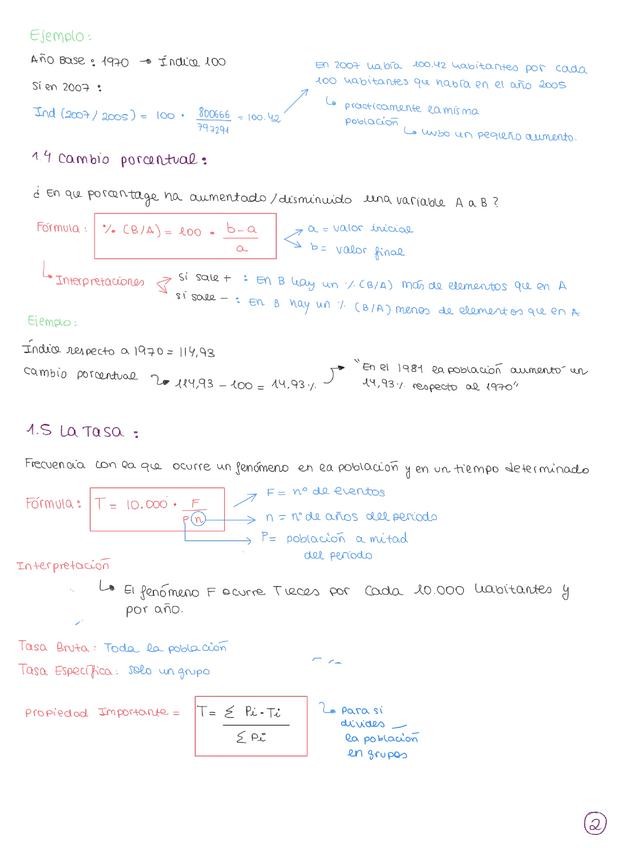 Ejemplo:
Año Base: 1970 → Índice 100
Si en 2007:
Ind (2007/2005) = 100 · 800666/797291 = 100.42
En 2007 había 100.42 habitantes por cada
100 habitantes que había en el año 2005
↳ practicamente la misma
población
↳ hubo un pequeño aumento.
1.4 Cambio porcentual:
¿En que porcentage ha aumentado/disminuido una variable A a B?
Fórmula: % (B/A) = 100 · b-a/a
a = valor inicial
b = valor final
↳ Interpretaciones
Si sale + : En B hay un % (B/A) más de elementos que en A
Si sale - : En B hay un % (B/A) menos de elementos que en A
Ejemplo:
Índice respecto a 1970 = 114,93
Cambio porcentual ↳ 114,93 - 100 = 14,93%
"En el 1981 la población aumentó un
14,93% respecto al 1970"
1.5 La Tasa:
Frecuencia con la que ocurre un fenómeno en la población y en un tiempo determinado
Fórmula: T = 10.000 · F/P n
F = nº de eventos
n = nº de años del periodo
P = población a mitad
del periodo
Interpretación
↳ El fenómeno F ocurre T veces por cada 10.000 habitantes y
por año.
Tasa Bruta: Toda la población
Tasa Específica: solo un grupo
Propiedad Importante = T = Σ Pi·Ti / Σ Pi
↳ para si
divides
la población
en grupos
2